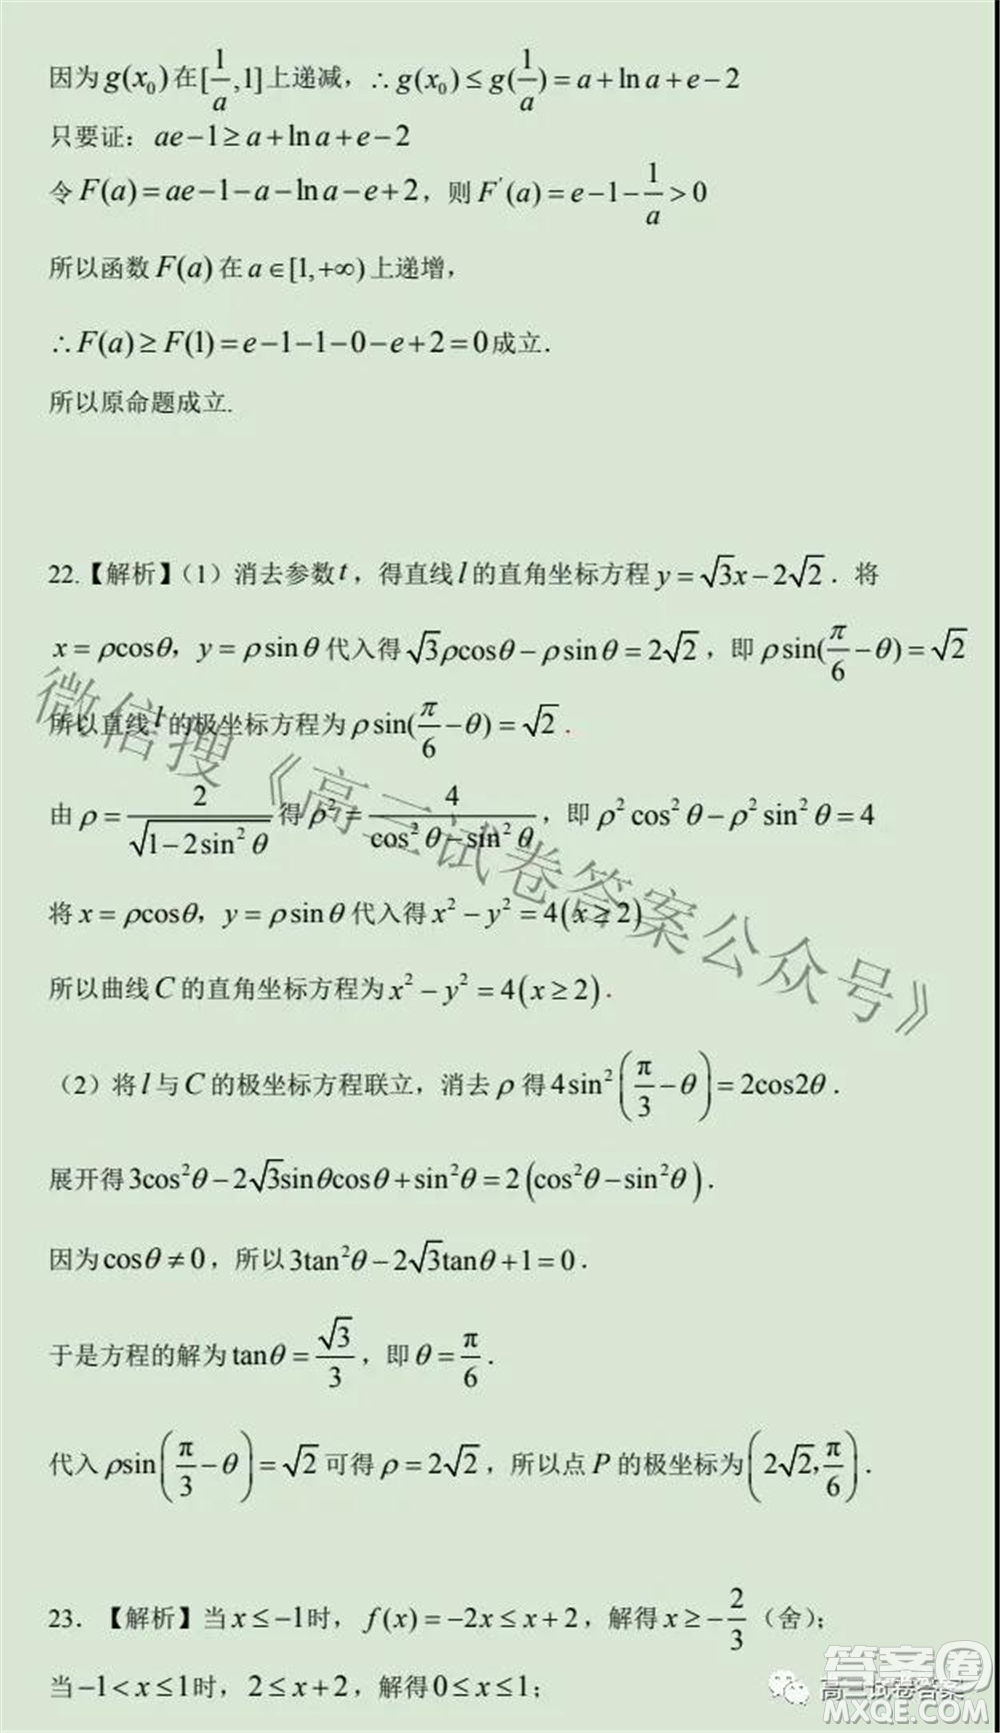 因为 g(x₀) 在 [1/a,1] 上递减，∴ g(x₀) ≤ g(1/a) = a + ln a + e − 2
只要证：ae − 1 ≥ a + ln a + e − 2
令 F(a) = ae − 1 − a − ln a − e + 2，则 F'(a) = e − 1 − 1/a > 0
所以函数 F(a) 在 a ∈ [1, +∞) 上递增，
∴ F(a) ≥ F(1) = e − 1 − 1 − 0 − e + 2 = 0 成立.
所以原命题成立.
22.【解析】（1）消去参数 t，得直线 l 的直角坐标方程 y = √3x − 2√2．将
x = ρcosθ，y = ρsinθ 代入得 √3ρcosθ − ρsinθ = 2√2，即 ρsin(π/6 − θ) = √2
所以直线 l 的极坐标方程为 ρsin(π/6 − θ) = √2．
由 ρ = 2/√(1 − 2sin²θ) 得 ρ² = 4/(cos²θ − sin²θ)，即 ρ²cos²θ − ρ²sin²θ = 4
将 x = ρcosθ，y = ρsinθ 代入得 x² − y² = 4(x ≥ 2)
所以曲线 C 的直角坐标方程为 x² − y² = 4(x ≥ 2)．
（2）将 l 与 C 的极坐标方程联立，消去 ρ 得 4sin²(π/3 − θ) = 2cos2θ．
展开得 3cos²θ − 2√3sinθcosθ + sin²θ = 2(cos²θ − sin²θ)．
因为 cosθ ≠ 0，所以 3tan²θ − 2√3tanθ + 1 = 0．
于是方程的解为 tanθ = √3/3，即 θ = π/6．
代入 ρsin(π/3 − θ) = √2 可得 ρ = 2√2，所以点 P 的极坐标为 (2√2, π/6)．
23．【解析】当 x ≤ −1 时，f(x) = −2x ≤ x + 2，解得 x ≥ −2/3（舍）；
当 −1 < x ≤ 1 时，2 ≤ x + 2，解得 0 ≤ x ≤ 1；
微信搜《高三试卷答案公众号》
高三试卷答案
答案圈
MXQE.COM